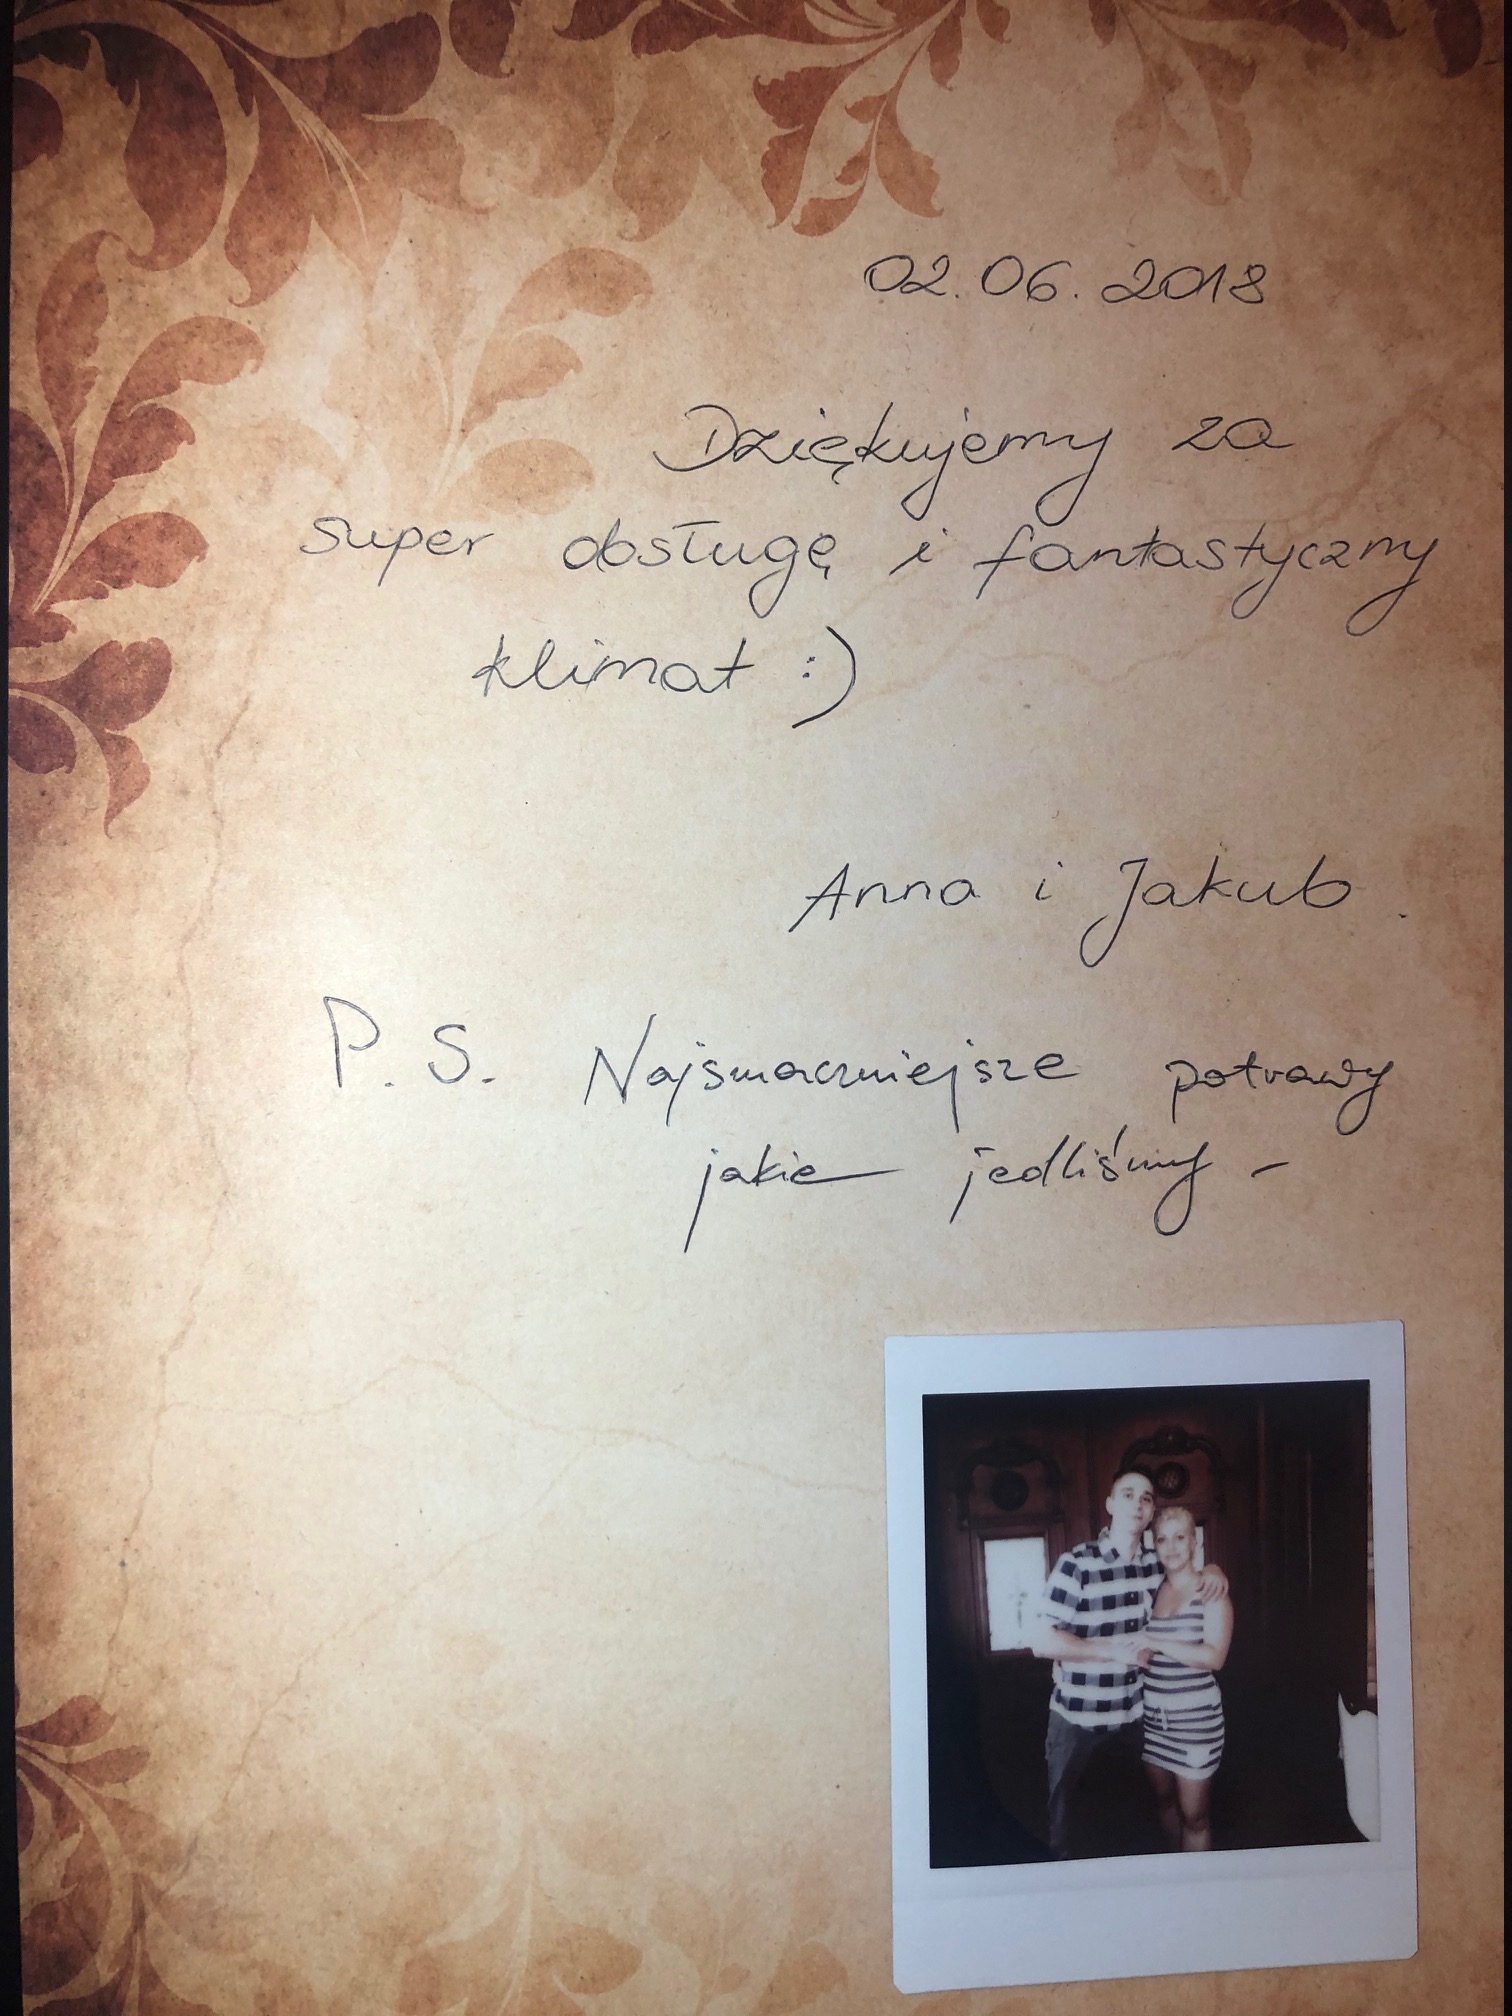 02.06.2018
Dziękujemy za
super obsługę i fantastyczny
klimat :)
Anna i Jakub.
P.S. Najsmaczniejsze potrawy
jakie jedliśmy -